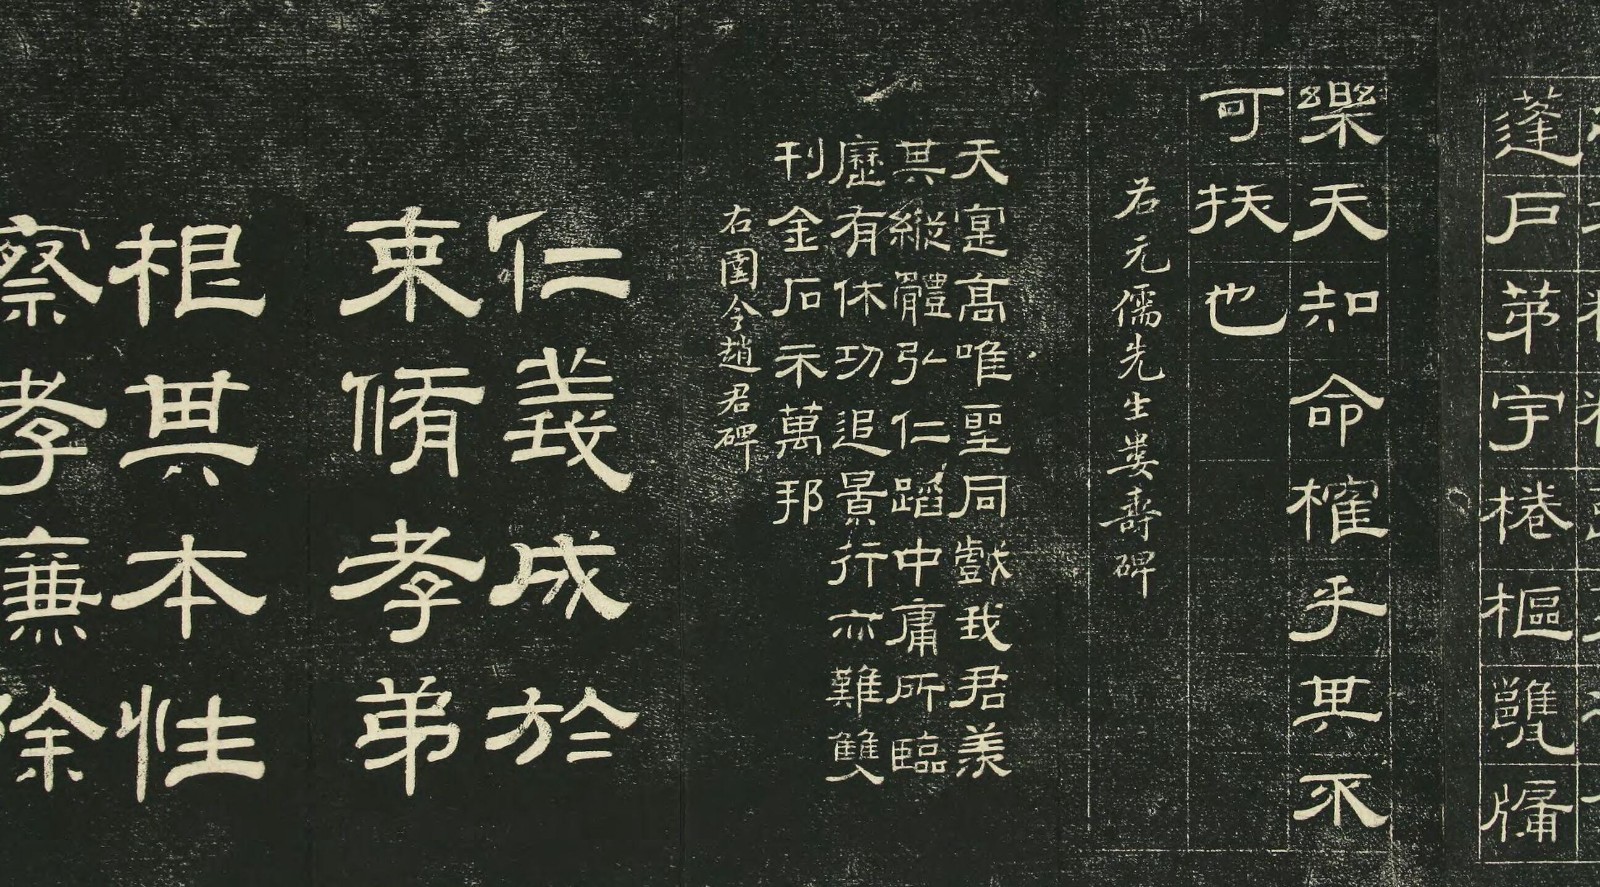 蓬戶茀宇棬樞甕牖
樂天知命榷乎其不
可拔也
右元儒先生婁壽碑
天寔高唯聖同戲我君羡
其縱體弘仁蹈中庸所臨
歷有休功追景行亦難雙
刊金石示萬邦
右圉令趙君碑
仁義成於
束脩孝弟
根其本性
察孝廉除